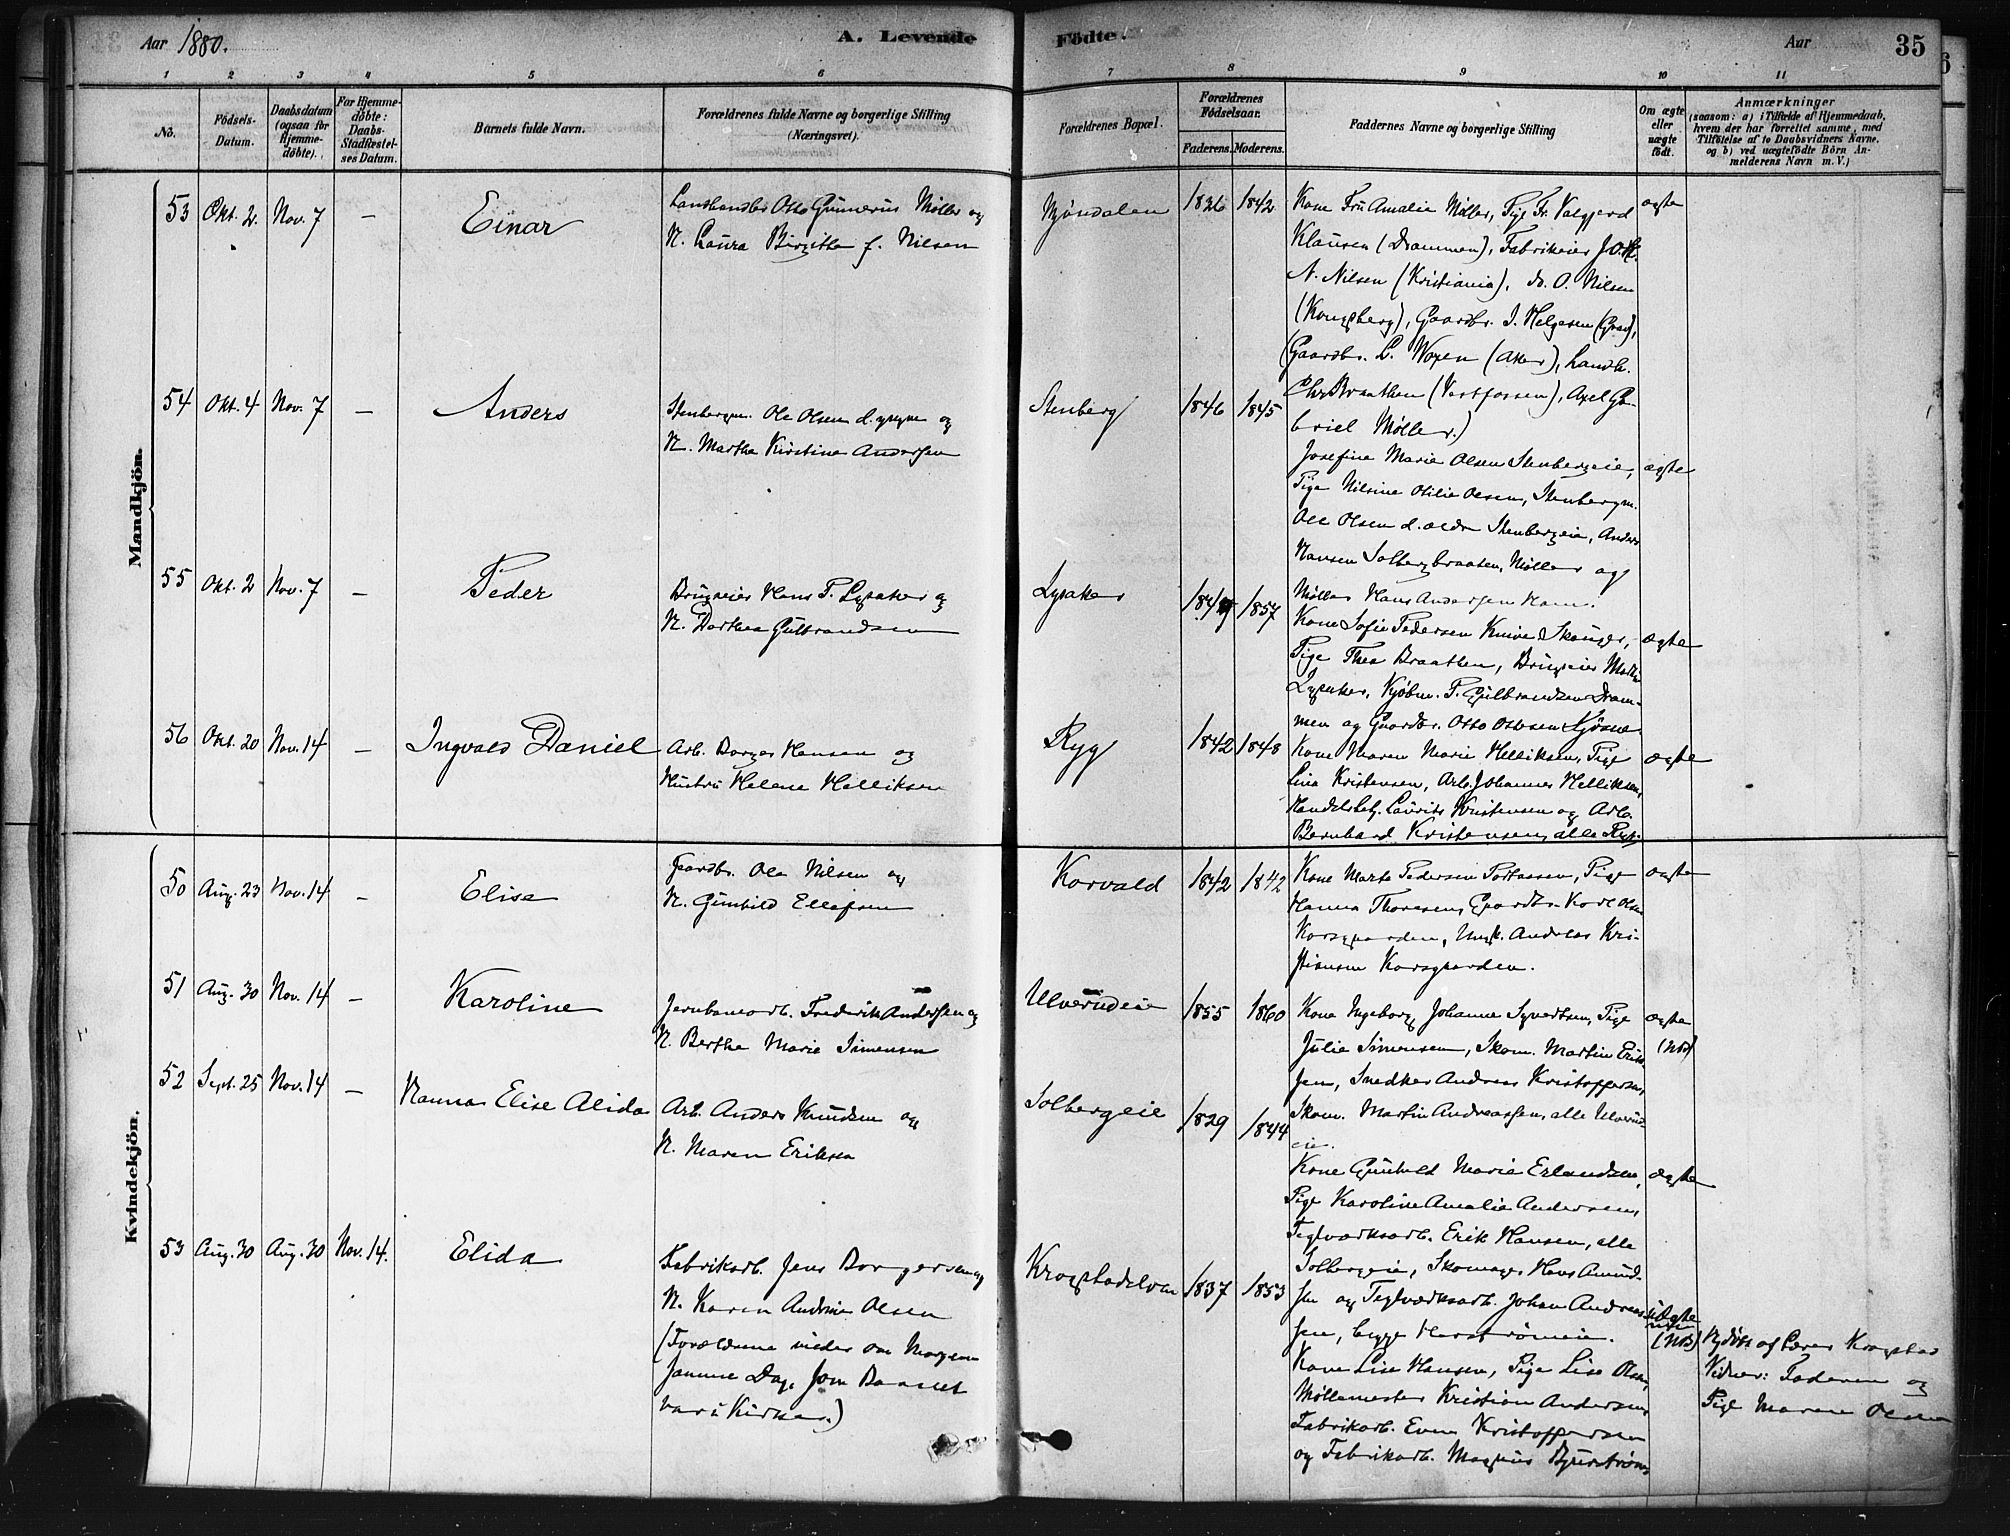 Aar 1880.
A. Levende
Födte.
Aar
35
1 2 3 4 5 6 7 8 9 10 11
No.
Födsels-
Datum.
Daabsdatum
(ogsaa for
Hjemme-
döbte).
For Hjemme-
döbte:
Daabs-
Stadfæstel-
ses Datum.
Barnets fulde Navn.
Forældrenes fulde Navne og borgerlige Stilling
(Næringsvei).
Forældrenes Bopæl.
Forældrenes
Födselsaar.
Faderens. Moderens.
Faddernes Navne og borgerlige Stilling
Om ægte
eller
uægte
födt.
Anmærkninger
(saasom: a) i Tilfælde af Hjemmedaab,
hvem der har forrettet samme, med
Tilföielse af to Daabsvidners Navne,
og b) ved uægtefödte Börn An-
melderens Navn m. V.)
Mandkjön.
53 Okt. 2. Nov. 7 – Einar
Landhandler Otto Gunnerus Møller og
N. Laura Birgitte f. Nilsen
Mjøndalen 1826 1842
Kone Fru Amalie Møller, Pige Fr. Valgjerd
Klausen (Drammen), Fabrikeier J. O. H.
N. Nilsen (Kristiania), do. O. Nilsen
(Kongsberg), Gaardbr. I. Helgesen (Gran),
(Gaardbr. L. Woxen (Aker), Landh.
Chr. Braathen (Vestfossen), Axel Ga-
briel Møller.)
ægte
54 Okt. 4 Nov. 7 – Anders
Stenbergm. Ole Olsen d. yngre og
N. Marthe Kirstine Andersen
Stenberg 1846 1845
Josefine Marie Olsen Stenbergeie,
Pige Nilsine Otilie Olsen, Stenbergm.
Ole Olsen d. ældre Stenbergeie, Anders
Hansen Solbergbraaten, Møller og
Møller Hans Andersen Ham.
ægte
55 Okt. 2 Nov. 7 – Peder
Brugseier Hans P. Lysaker og
N. Dorthea Gulbrandsen
Lysaker 1849 1857
Kone Sofie Pedersen Knive Skouger,
Pige Thea Braathen, Brugseier
Lysaker, Kjøbm. P. Gulbrandsen Dram-
men og Gaardbr. Otto Ottosen
ægte
56 Okt. 20 Nov. 14 – Ingvald Daniel
Arb. Borger Hansen og
Hustru Helene Helliksen
Ryg 1842 1848
Kone Maren Marie Helliksen, Pige
Lina Kristensen, Arb. Johannes Helliksen,
Handelsbetj. Laurits Kristensen og Arb.
Bernhard Kristensen, alle Ryg.
ægte
Kvindekjön.
50 Aug. 23 Nov. 14 – Elise
Gaardbr. Ole Nilsen og
N. Gunhild Ellefsen
Korvald 1842 1842
Kone Marte Pedersen, Pige
Hanna Thoresen, Gaardbr. Karl Olsen
Korsgaarden, Ungk. Andreas Kri-
stiansen Korsgaarden.
ægte
51 Aug. 30 Nov. 14 – Karoline
Jernbanearb. Fredrik Andersen og
N. Berthe Marie Simensen
Ulverudeie 1855 1860
Kone Ingeborg Johanne Syvertsen, Pige
Julie Simensen, Skom. Martin Erik-
sen, Snedker Andreas Kristoffersen,
Skom. Martin Andreassen, alle Ulverud-
eie.
ægte
(NB)
52 Sept. 25 Nov. 14 – Hanna Elise Alida
Arb. Anders Knudsen og
N. Maren Eriksen
Solbergeie 1829 1844
Kone Gunhild Marie Erlandsen,
Pige Karoline Amalie Andersen,
Teglværksarb. Erik Hansen, alle
Solbergeie, Skomager Hans Amund-
sen og Teglværksarb. Johan Andreas-
sen, begge Horstrømeie.
ægte
53 Aug. 30 Aug. 30 Nov. 14. Elida
Fabrikarb. Jens Borgersen og
N. Karen Andrine Olsen
(Forældrene viedes om Morgenen
samme Dag, som Barnet
var i Kirken.)
Krogstadelven 1837 1853
Kone Lise Hansen, Pige Lise Olsen,
Møllemester Kristian Andersen,
Fabrikarb. Even Kristoffersen
og Fabrikarb. Magnus Bjurstrøm
(NB)
Hjdøbt af Lærer Krogstad
Vidner: Faderen og
Pige Maren Olsen